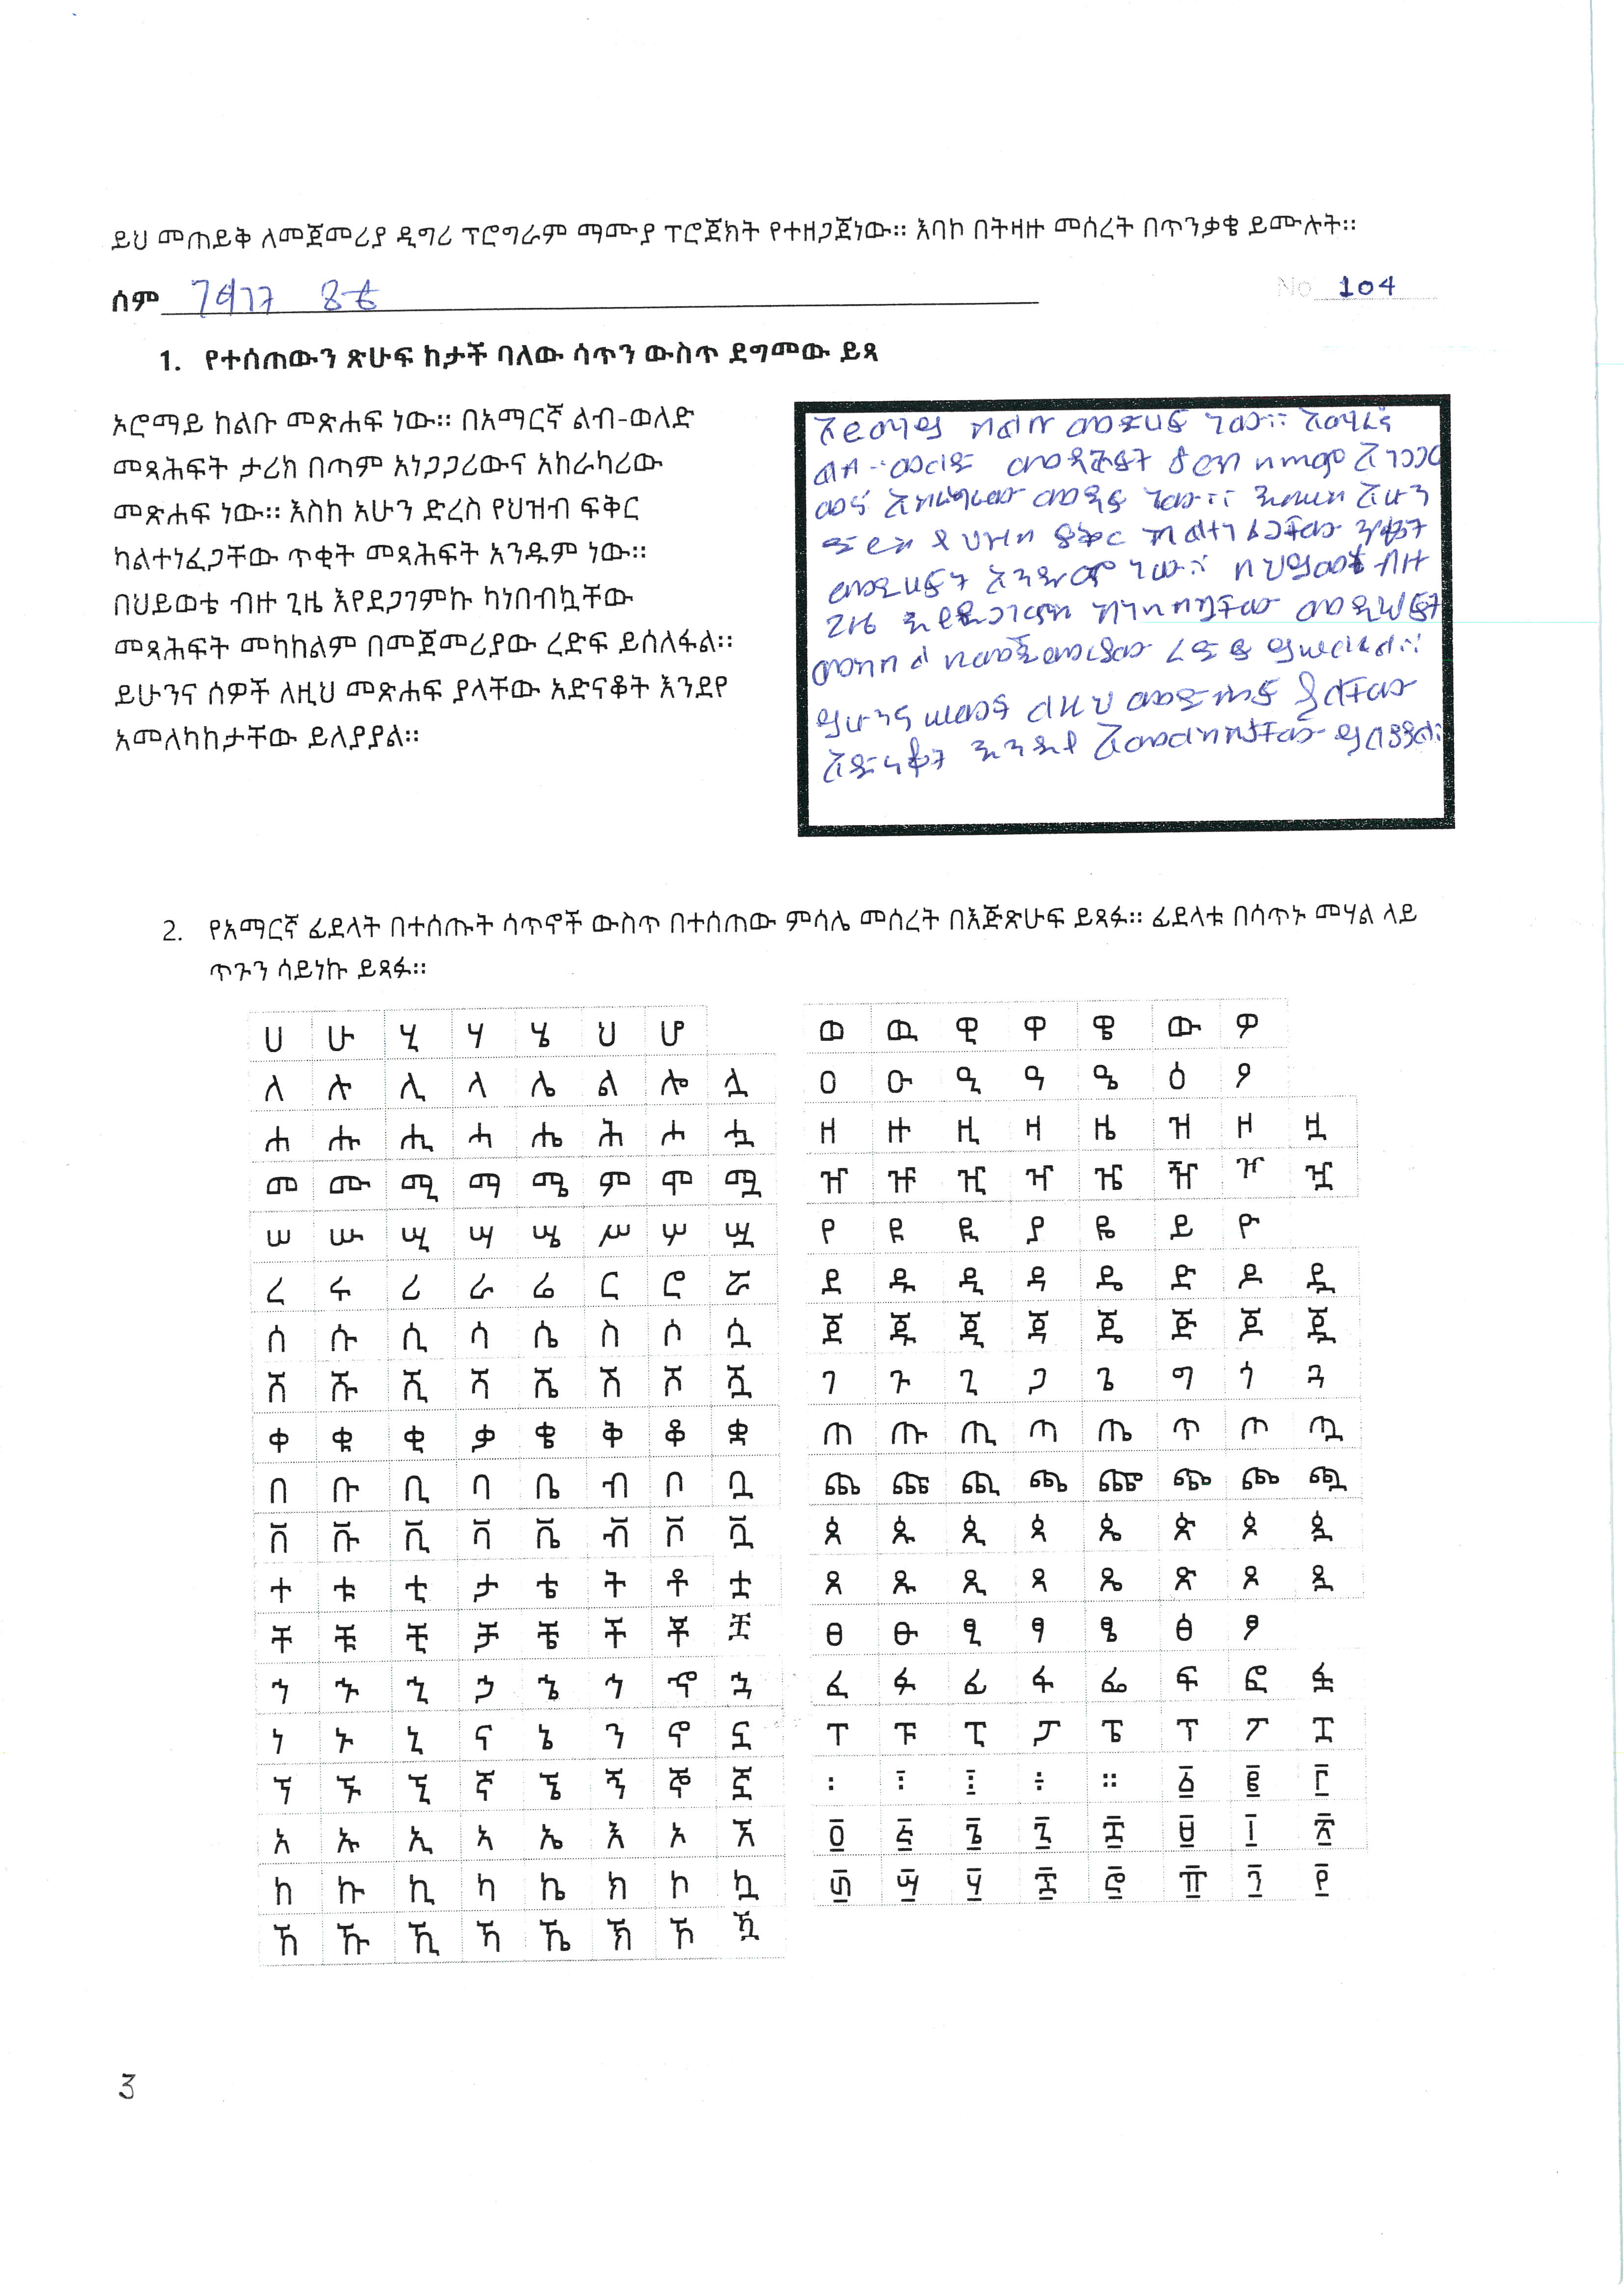 ይህ መጠይቅ ለመጀመሪያ ዲግሪ ፕሮግራም ማሙያ ፕሮጀክት የተዘጋጀነው። እባኮ በትዛዙ መሰረት በጥንቃቄ ይሙሉት።
ስም
No 104
1. የተሰጠውን ጽሁፍ ከታች ባለው ሳጥን ውስጥ ደግመው ይጻ
ኦሮማይ ከልቡ መጽሐፍ ነው። በአማርኛ ልብ-ወለድ
መጻሕፍት ታሪክ በጣም አነጋጋሪውና አከራካሪው
መጽሐፍ ነው። እስከ አሁን ድረስ የህዝብ ፍቅር
ካልተነፈጋቸው ጥቂት መጻሕፍት አንዱም ነው።
በህይወቴ ብዙ ጊዜ እየደጋገምኩ ካነበብኳቸው
መጻሕፍት መካከልም በመጀመሪያው ረድፍ ይሰለፋል።
ይሁንና ሰዎች ለዚህ መጽሐፍ ያላቸው አድናቆት እንደየ
አመለካከታቸው ይለያያል።
ከልቡ መጽሀፍ ነው።
ልብ-ወለድ መጻሕፍት በጣም
መጽሀፍ ነው። እስከ አሁን
ድረስ የህዝብ ፍቅር ካልተነፈጋቸው ጥቂት
ነው። በህይወቴ ብዙ
ጊዜ
በመጀመሪያው ረድፍ
ይሁንና ሠዎች ለዚህ መጽሐፍ ያላቸው
አድናቆት እንደየ አመለካከታቸው
2. የአማርኛ ፊደላት በተሰጡት ሳጥኖች ውስጥ በተሰጠው ምሳሌ መሰረት በእጅጽሁፍ ይጻፉ። ፊደላቱ በሳጥኑ መሃል ላይ
ጥጉን ሳይነኩ ይጻፉ።
ሀ ሁ ሂ ሃ ሄ ህ ሆ
ለ ሉ ሊ ላ ሌ ል ሎ ሏ
ሐ ሑ ሒ ሓ ሔ ሕ ሖ ሗ
መ ሙ ሚ ማ ሜ ም ሞ ሟ
ሠ ሡ ሢ ሣ ሤ ሥ ሦ ሧ
ረ ሩ ሪ ራ ሬ ር ሮ ሯ
ሰ ሱ ሲ ሳ ሴ ስ ሶ ሷ
ሸ ሹ ሺ ሻ ሼ ሽ ሾ ሿ
ቀ ቁ ቂ ቃ ቄ ቅ ቆ ቋ
በ ቡ ቢ ባ ቤ ብ ቦ ቧ
ቨ ቩ ቪ ቫ ቬ ቭ ቮ ቯ
ተ ቱ ቲ ታ ቴ ት ቶ ቷ
ቸ ቹ ቺ ቻ ቼ ች ቾ ቿ
ኀ ኁ ኂ ኃ ኄ ኅ ኆ ኋ
ነ ኑ ኒ ና ኔ ን ኖ ኗ
ኘ ኙ ኚ ኛ ኜ ኝ ኞ ኟ
አ ኡ ኢ ኣ ኤ እ ኦ ኧ
ከ ኩ ኪ ካ ኬ ክ ኮ ኳ
ኸ ኹ ኺ ኻ ኼ ኽ ኾ ዃ
ወ ዉ ዊ ዋ ዌ ው ዎ
ዐ ዑ ዒ ዓ ዔ ዕ ዖ
ዘ ዙ ዚ ዛ ዜ ዝ ዞ ዟ
ዠ ዡ ዢ ዣ ዤ ዥ ዦ ዧ
የ ዩ ዪ ያ ዬ ይ ዮ
ደ ዱ ዲ ዳ ዴ ድ ዶ ዷ
ጀ ጁ ጂ ጃ ጄ ጅ ጆ ጇ
ገ ጉ ጊ ጋ ጌ ግ ጎ ጓ
ጠ ጡ ጢ ጣ ጤ ጥ ጦ ጧ
ጨ ጩ ጪ ጫ ጬ ጭ ጮ ጯ
ጰ ጱ ጲ ጳ ጴ ጵ ጶ ጷ
ጸ ጹ ጺ ጻ ጼ ጽ ጾ ጿ
ፀ ፁ ፂ ፃ ፄ ፅ ፆ
ፈ ፉ ፊ ፋ ፌ ፍ ፎ ፏ
ፐ ፑ ፒ ፓ ፔ ፕ ፖ ፗ
፡ ፣ ፤ ፥ ። ፩ ፪ ፫
፬ ፭ ፮ ፯ ፰ ፱ ፲ ፳
፴ ፵ ፶ ፷ ፸ ፹ ፺ ፻
3